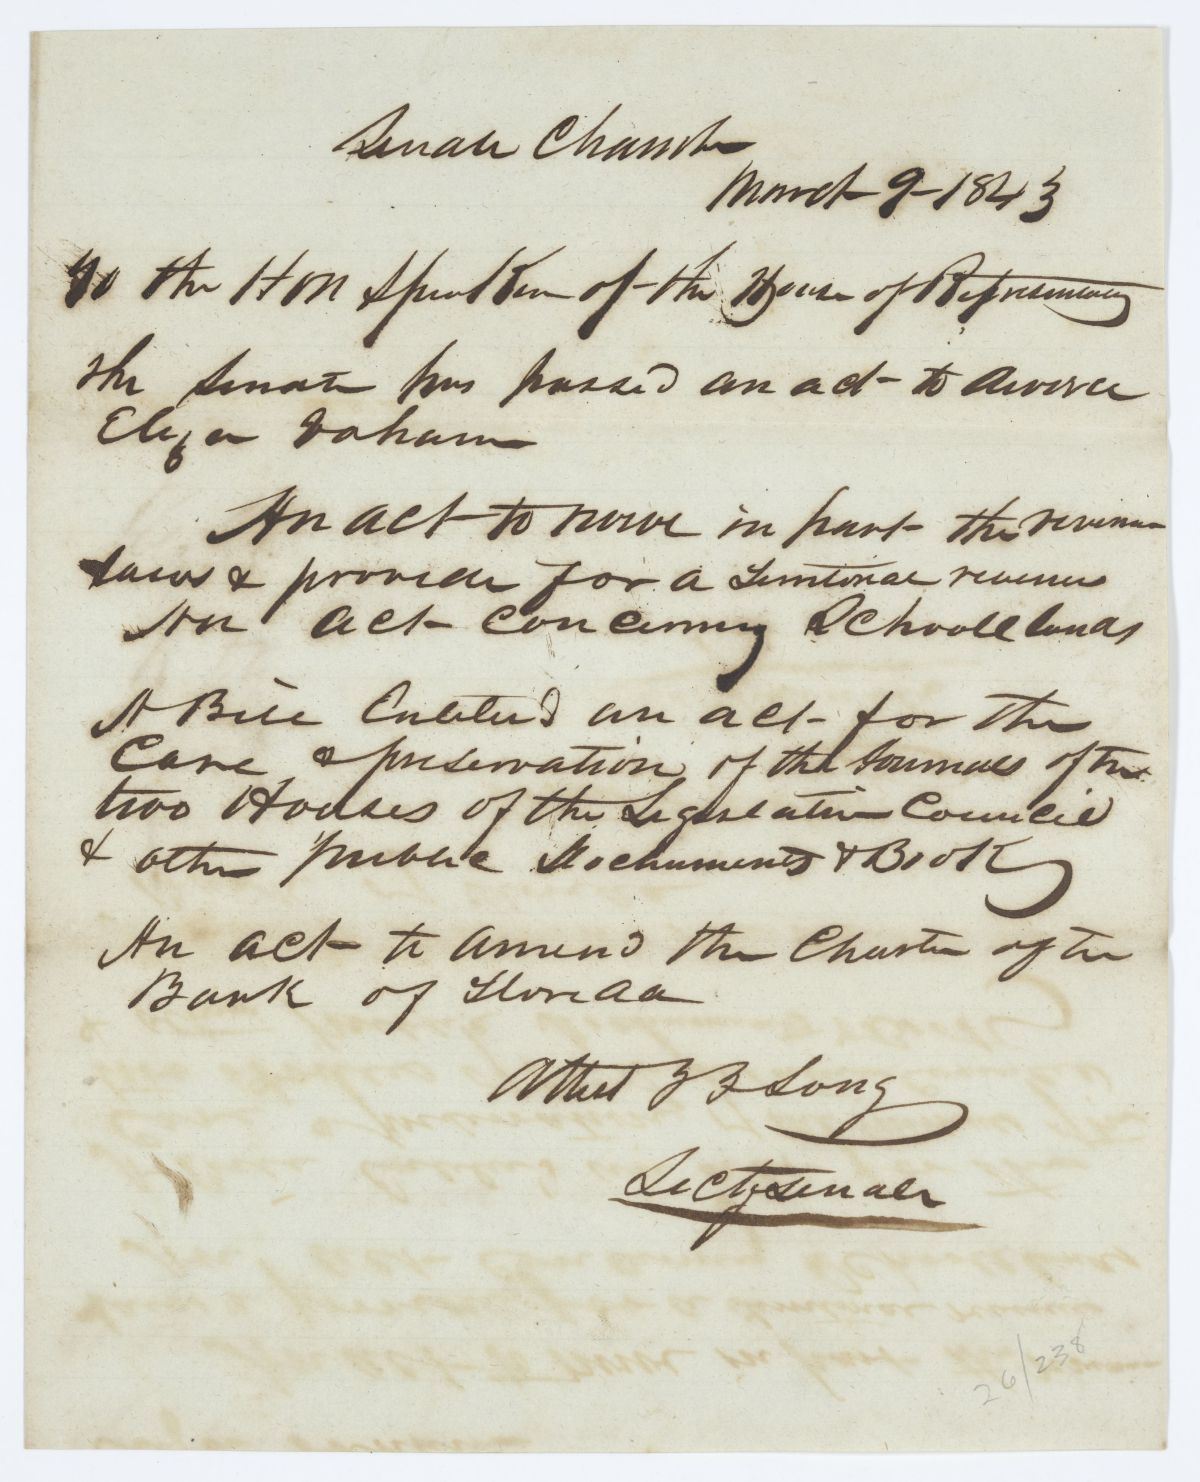 Senate Chamber
March 9 1843
To the Hon Speaker of the House of Representatives
The Senate has passed an act to divorce
Eliza
An act to revive in part the revenue
laws & provide for a Territorial revenue
An act concerning Schooll lands
A Bill Entitled an act for the
Care & preservation of the Journals of the
two Houses of the Legislative Council
& other public Dochuments & Books
An act to amend the Charter of the
Bank of Florida
Attest Long
Secty Senate
26/238